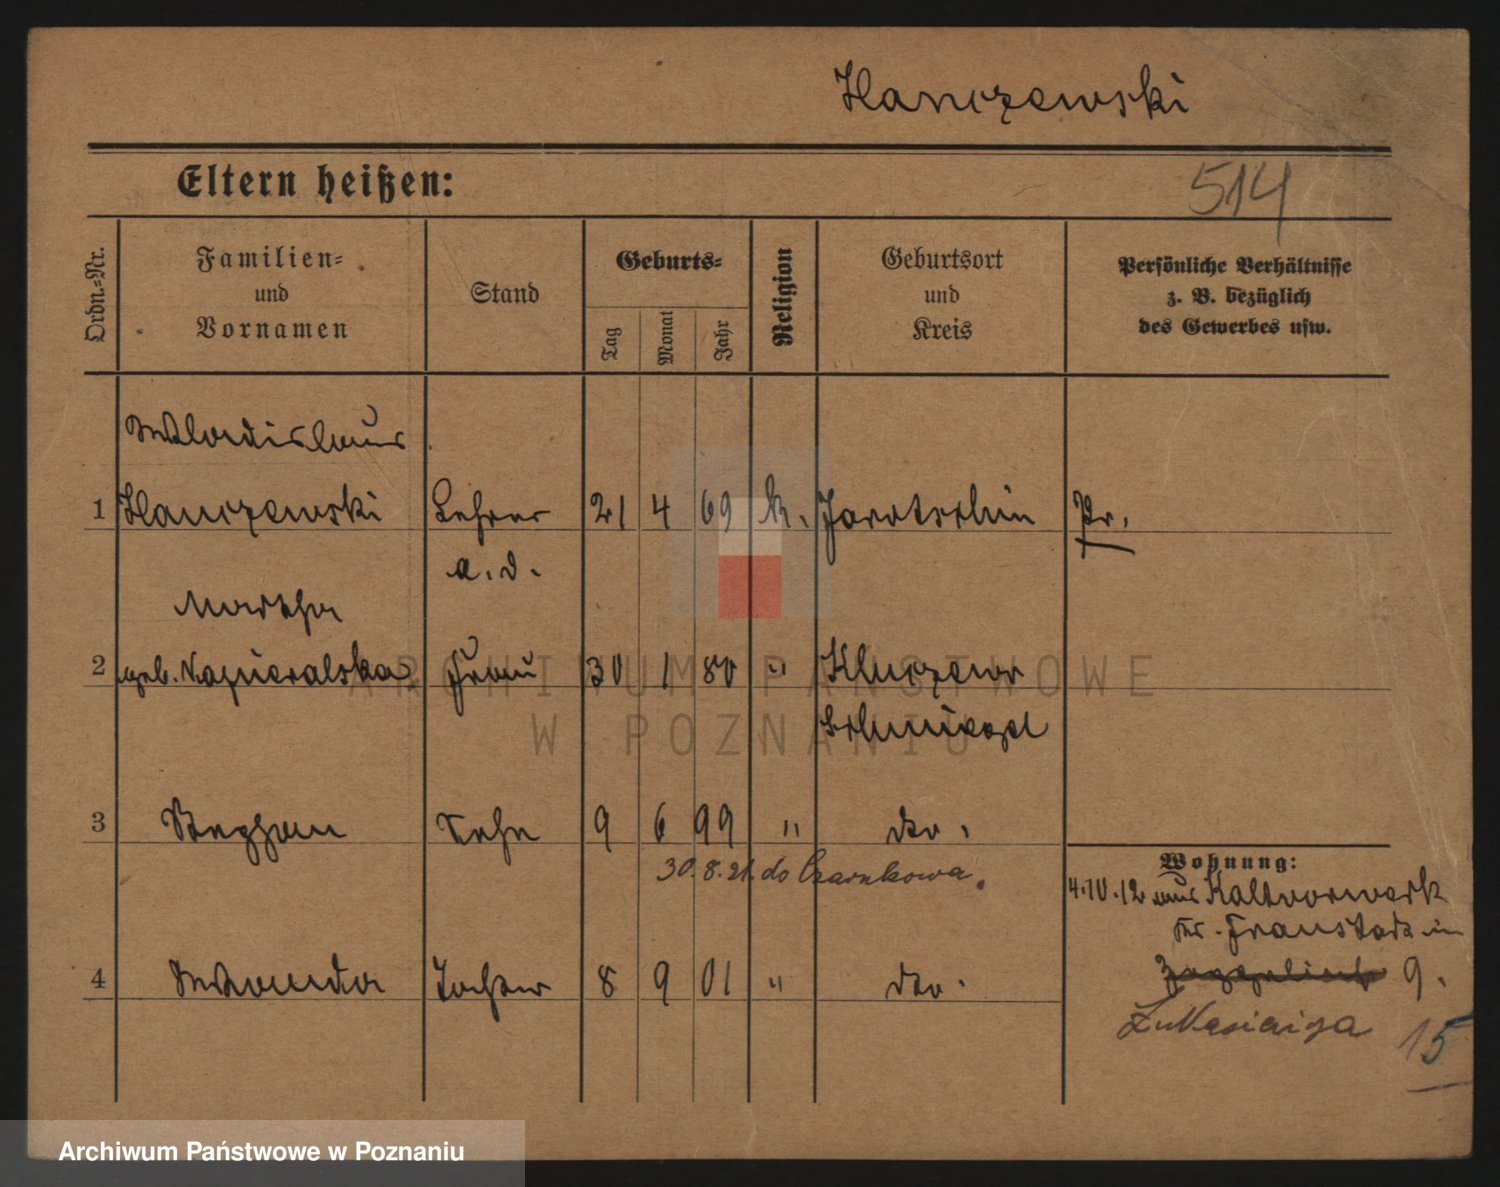 Hanczewski
Eltern heißen:
514
Ordn.-Nr.
Familien-
und
Vornamen
Stand
Geburts-
Tag
Monat
Jahr
Religion
Geburtsort
und
Kreis
Persönliche Verhältnisse
z. B. bezüglich
des Gewerbes usw.
Wladislaus
1 Hanczewski Lehrer 21 4 69 k. Jarotschin Pr.
a. D.
Martha
2 geb. Napieralska Frau 30 1 80 " Kluczewo
Schmiegel
3 Stephan Sohn 9 6 99 " dto.
30.8.21. do Czarnkowa.
Wohnung:
4.10.12 aus Kaltvorwerk
Kr. Fraustadt in
4 Wanda Tochter 8 9 01 " dto.
9.
15
ARCHIWUM PAŃSTWOWE
W POZNANIU
Archiwum Państwowe w Poznaniu